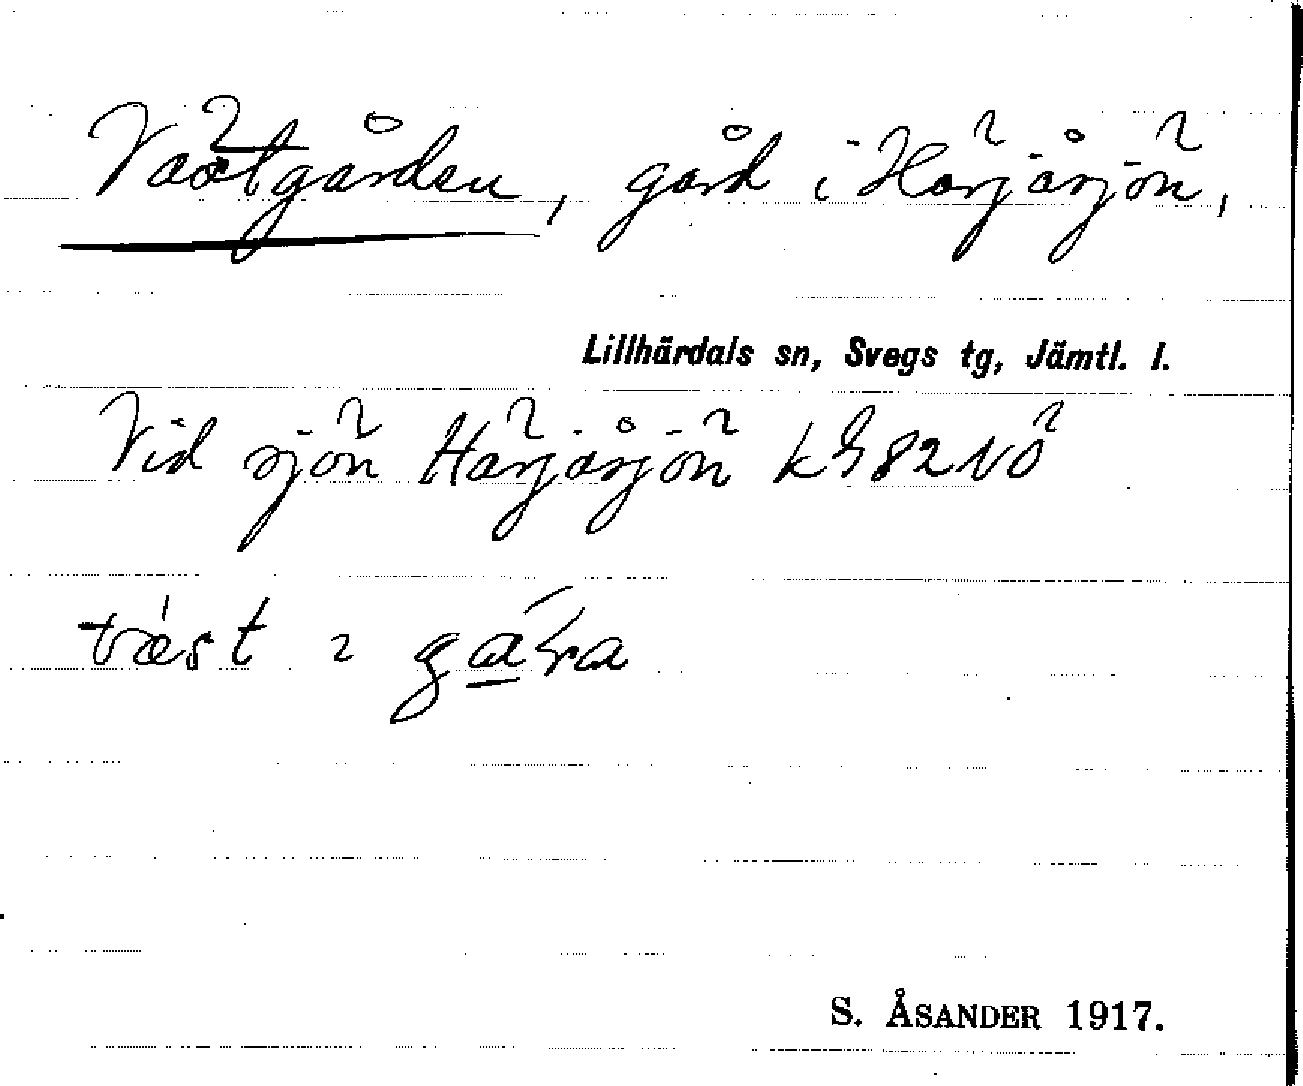 Västgården, gård i Härjåsjön,
Lillhärdals sn, Svegs tg, Jämtl. l.
Vid sjön Härjåsjön 82 NÖ
S. ÅSANDER 1917.